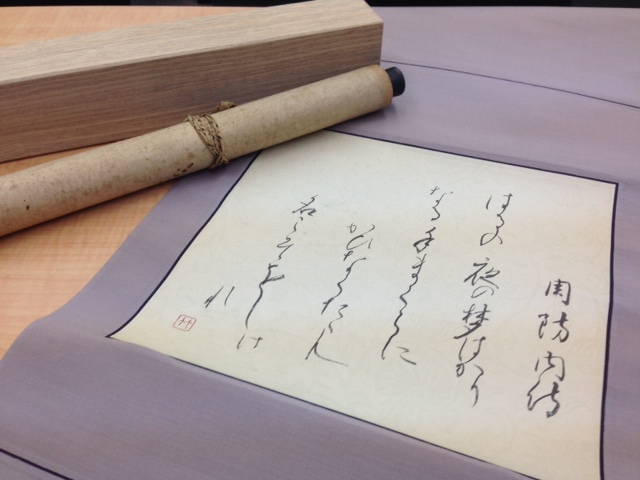 周防内侍
はるの夜の夢はかり
なる手まくらに
かひなくたゝん
名こそをしけ
れ